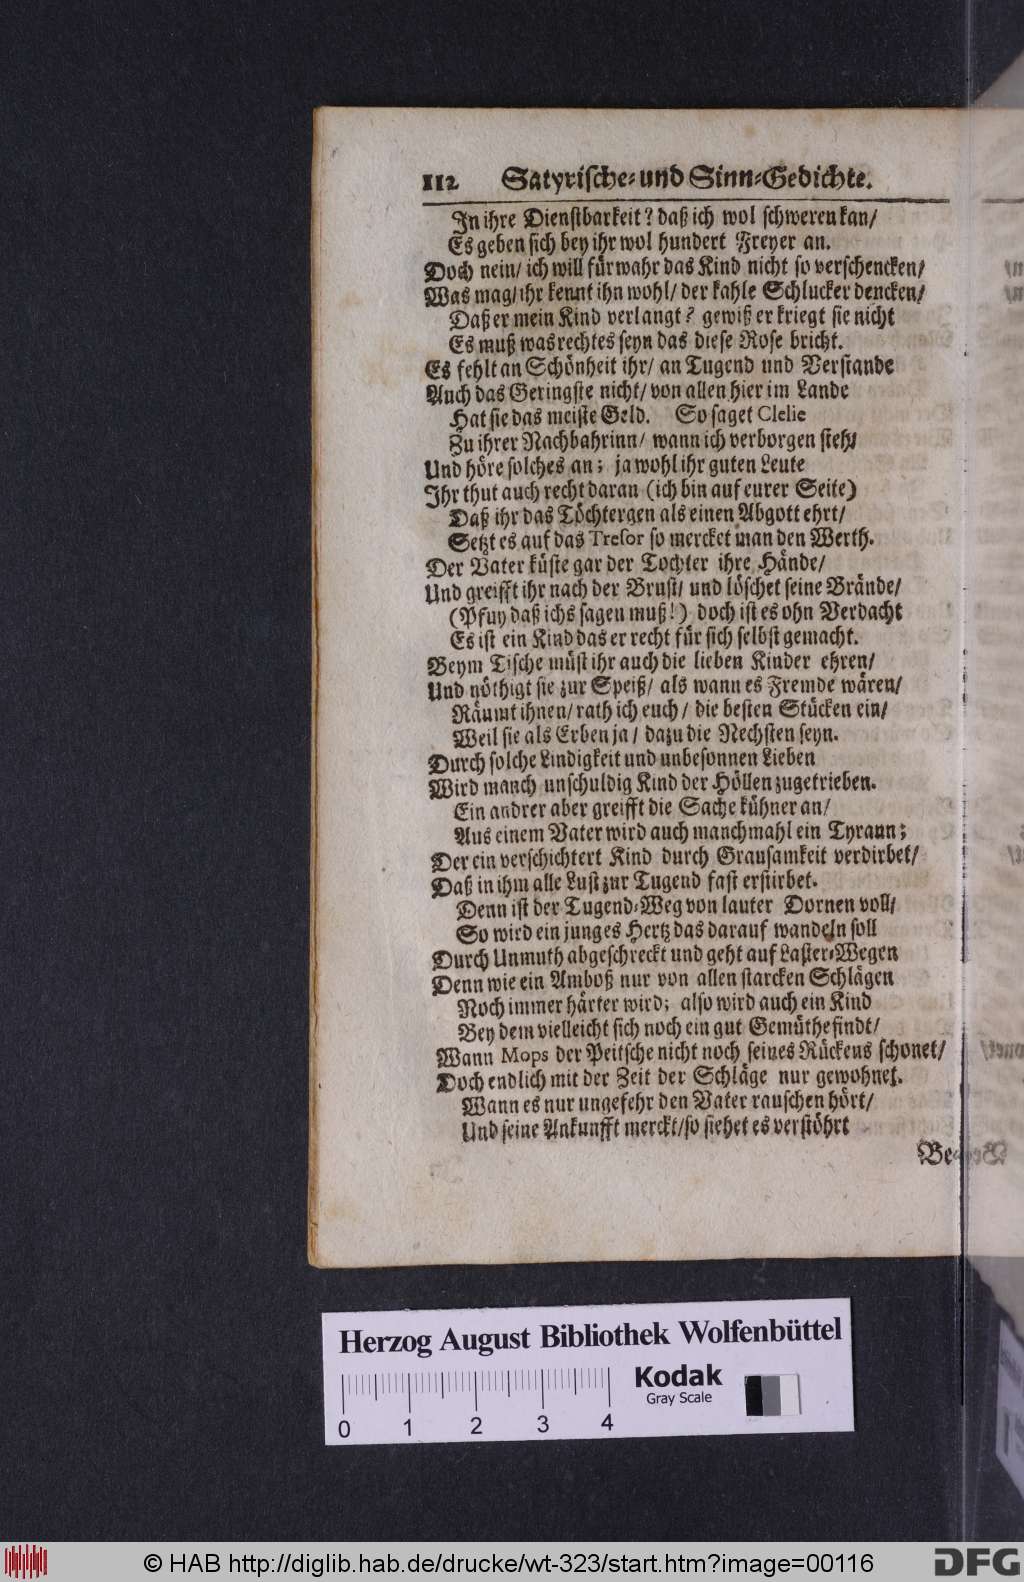 112 Satyrische- und Sinn-Gedichte.
In ihre Dienstbarkeit? daß ich wol schweren kan/
Es geben sich bey ihr wol hundert Freyer an.
Doch nein/ ich will fürwahr das Kind nicht so verschencken/
Was mag/ ihr kennt ihn wohl/ der kahle Schlucker dencken/
Daß er mein Kind verlangt? gewiß er kriegt sie nicht
Es muß was rechtes seyn das diese Rose bricht.
Es fehlt an Schönheit ihr/ an Tugend und Verstande
Auch das Geringste nicht/ von allen hier im Lande
Hat sie das meiste Geld. So saget Clelie
Zu ihrer Nachbahrinn/ wann ich verborgen steh/
Und höre solches an; ja wohl ihr guten Leute
Ihr thut auch recht daran (ich bin auf eurer Seite)
Daß ihr das Töchtergen als einen Abgott ehrt/
Setzt es auf das Tresor so mercket man den Werth.
Der Vater küste gar der Tochter ihre Hände/
Und greifft ihr nach der Brust/ und löschet seine Brände/
(Pfuy daß ichs sagen muß!) doch ist es ohn Verdacht
Es ist ein Kind das er recht für sich selbst gemacht.
Beym Tische müst ihr auch die lieben Kinder ehren/
Und nöthigt sie zur Speiß/ als wann es Fremde wären/
Räumt ihnen/ rath ich euch/ die besten Stücken ein/
Weil sie als Erben ja/ dazu die Nechsten seyn.
Durch solche Lindigkeit und unbesonnen Lieben
Wird manch unschuldig Kind der Höllen zugetrieben.
Ein andrer aber greifft die Sache kühner an/
Aus einem Vater wird auch manchmahl ein Tyrann;
Der ein verschichtert Kind durch Grausamkeit verdirbet/
Daß in ihm alle Lust zur Tugend fast erstirbet.
Denn ist der Tugend-Weg von lauter Dornen voll/
So wird ein junges Hertz das darauf wandeln soll
Durch Unmuth abgeschreckt und geht auf Laster-Wegen
Denn wie ein Amboß nur von allen starcken Schlägen
Noch immer härter wird; also wird auch ein Kind
Bey dem vielleicht sich noch ein gut Gemüthe findt/
Wann Mops der Peitsche nicht noch seines Rückens schonet/
Doch endlich mit der Zeit der Schläge nur gewohnet.
Wann es nur ungefehr den Vater rauschen hört/
Und seine Ankunfft merckt/ so siehet es verstöhrt
Herzog August Bibliothek Wolfenbüttel
Kodak
Gray Scale
0 1 2 3 4
© HAB http://diglib.hab.de/drucke/wt-323/start.htm?image=00116
DFG